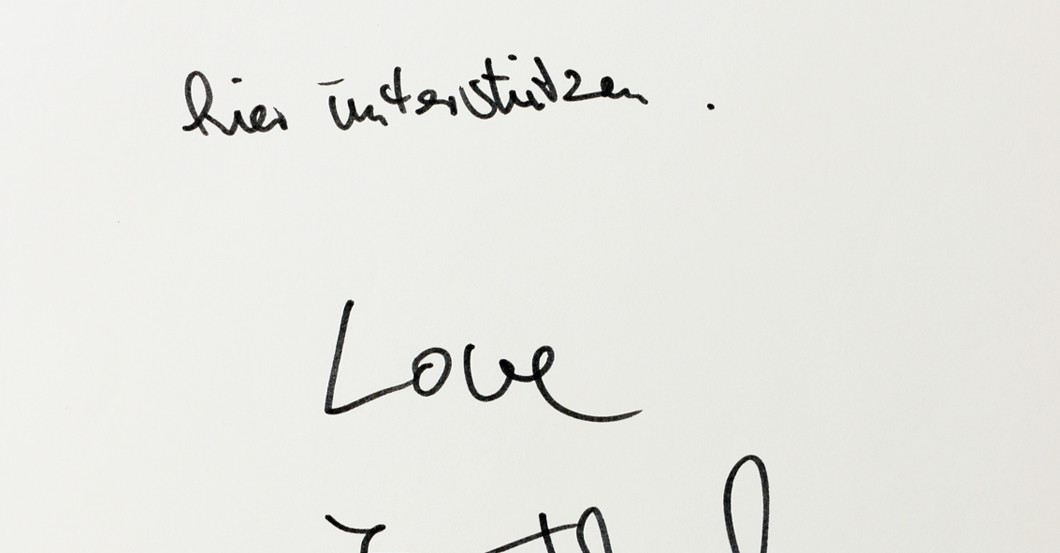 hier unterstützen .
Love